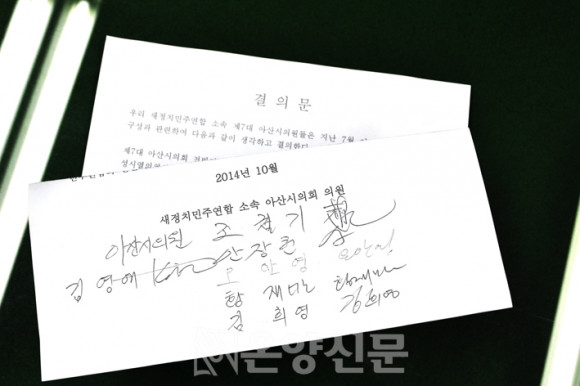 결 의 문
우리 새정치민주연합 소속 제7대 아산시의원들은 지난 7월
구성과 관련하여 다음과 같이 생각하고 결의한다
제7대 아산시의회
2014년 10월
새정치민주연합 소속 아산시의회 의원
아산시의원 조 철 기
김 영 애 안 장 헌
오 안 영 오안영
황 재 만
김 희 영 김희영
온양신문